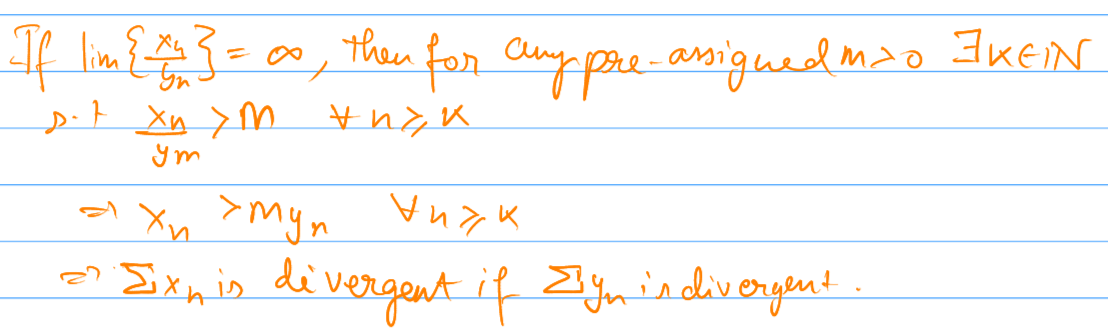 If lim{xₙ/yₙ} = ∞, then for any pre-assigned m>0 ∃ K∈ℕ
s.t xₙ/yₘ > m ∀ n ≥ K
⇒ xₙ > myₙ ∀ n ≥ K
⇒ Σxₙ is divergent if Σyₙ is divergent.